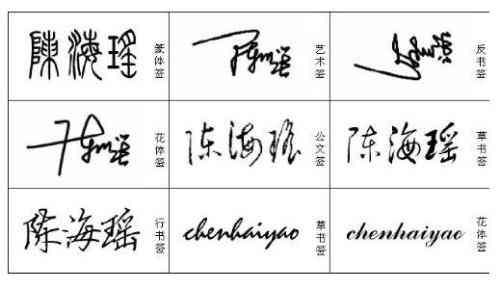 陳海瑤 篆体签
陈海瑶 艺术签
陈海瑶 反书签
陈海瑶 花体签
陈海瑶 公文签
陈海瑶 草书签
陈海瑶 行书签
chenhaiyao 草书签
chenhaiyao 花体签